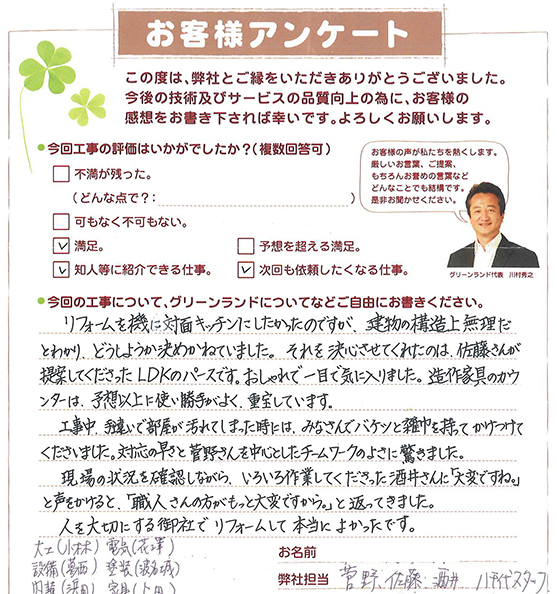 お客様アンケート
この度は、弊社とご縁をいただきありがとうございました。
今後の技術及びサービスの品質向上の為に、お客様の
感想をお書き下されば幸いです。よろしくお願いします。
●今回工事の評価はいかがでしたか？(複数回答可)
不満が残った。
(どんな点で？： )
可もなく不可もない。
満足。
予想を超える満足。
知人等に紹介できる仕事。
次回も依頼したくなる仕事。
お客様の声が私たちを熱くします。
厳しいお言葉、ご提案、
もちろんお誉めの言葉など
どんなことでも結構です。
是非お聞かせください。
グリーンランド代表 川村秀之
●今回の工事について、グリーンランドについてなどご自由にお書きください。
リフォームを機に対面キッチンにしたかったのですが、建物の構造上無理だ
とわかり、どうしようか決めかねていました。それを決心させてくれたのは、佐藤さんが
提案してくださったLDKのパースです。おしゃれで一目で気に入りました。造作家具のカウ
ンターは、予想以上に使い勝手がよく、重宝しています。
工事中、手違いで部屋が汚れてしまった時には、みなさんでバケツと雑巾を持ってかけつけて
くださいました。対応の早さと菅野さんを中心としたチームワークのよさに驚きました。
現場の状況を確認しながら、いろいろ作業してくださった酒井さんに「大変ですね。」
と声をかけると、「職人さんの方がもっと大変ですから。」と返ってきました。
人を大切にする御社でリフォームして本当によかったです。
大工(小林) 電気(花澤)
設備(葛西) 塗装
お名前
弊社担当 菅野、佐藤、酒井